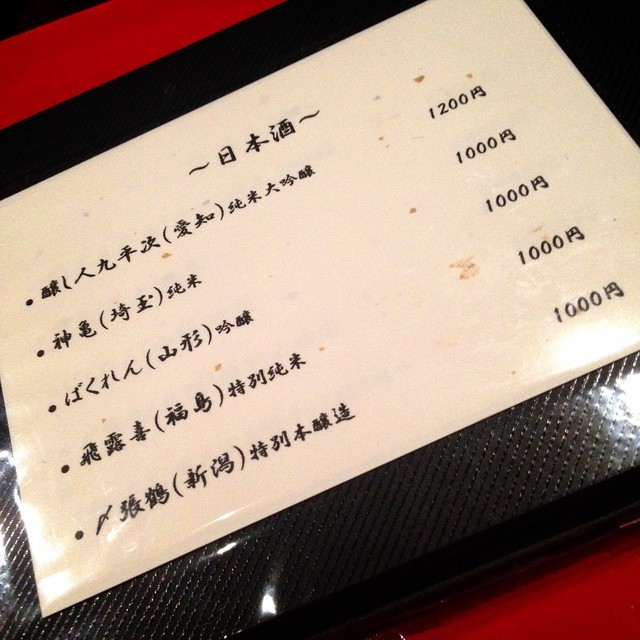 ～日本酒～
•醸し人九平次(愛知)純米大吟醸 1200円
•神亀(埼玉)純米 1000円
•ばくれん(山形)吟醸 1000円
•飛露喜(福島)特別純米 1000円
•〆張鶴(新潟)特別本醸造 1000円